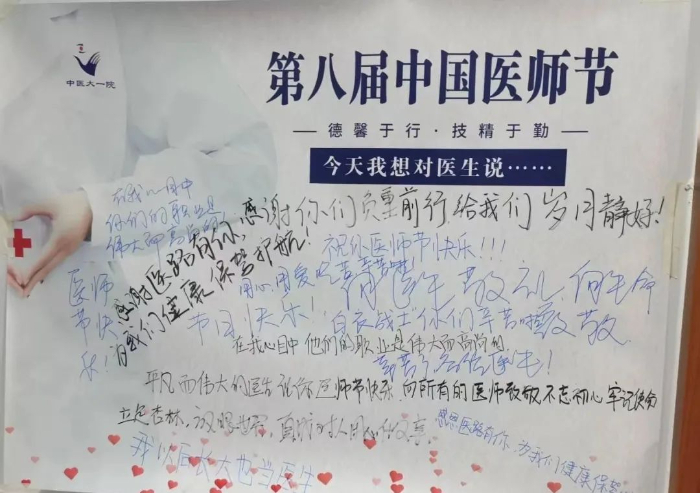 中医大一院
第八届中国医师节
德馨于行·技精于勤
今天我想对医生说……
在我心目中
你们的职业是
伟大而高尚的
感谢你们负重前行给我们岁月静好!
感谢医路有你,
为我们健康保驾护航!
祝你医师节快乐!!!
医师
节快
乐!
用心用爱
向医生敬礼,向生命
致敬
节日快乐!
白衣战士你们辛苦啦
在我心目中他们的职业是伟大而高尚的
辛苦了
平凡而伟大的医生祝你医师节快乐
向所有的医师致敬,不忘初心牢记使命
立足杏林,
感恩医路有你,为我们健康保驾
我以后长大也当医生